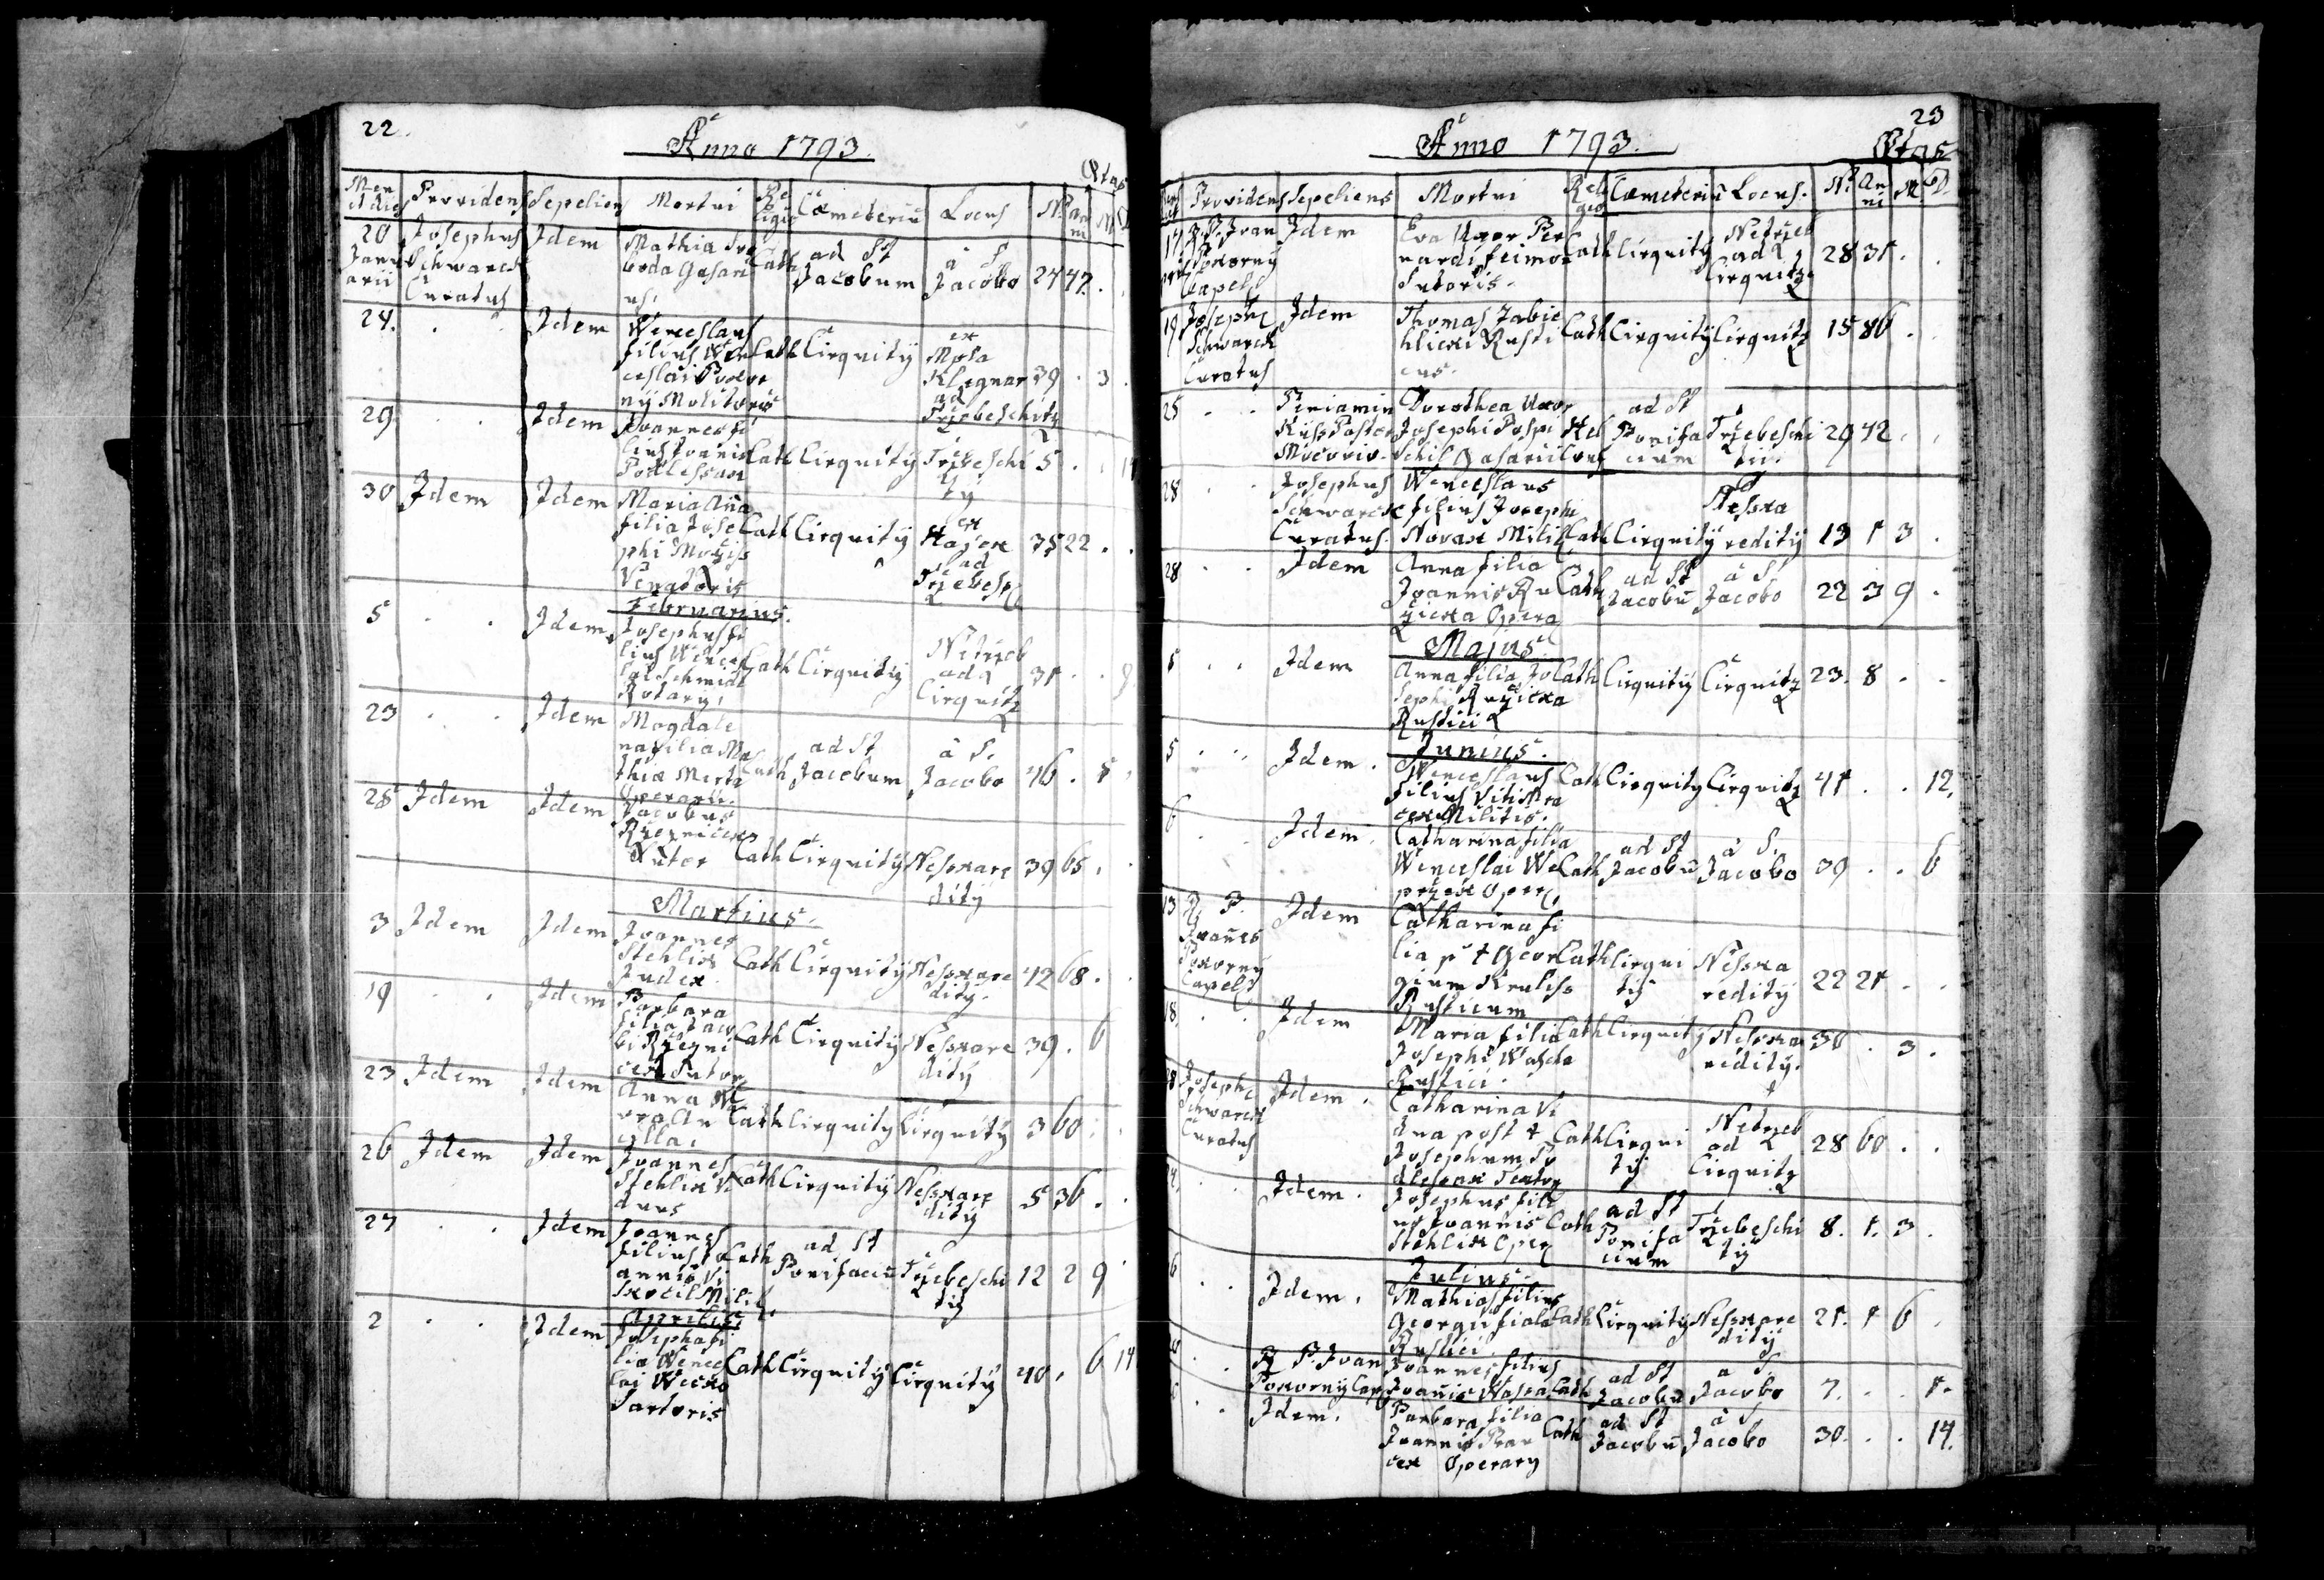 22.
Anno 1793.
Ætas
Men et dies Providens Sepeliens Mortui Religio Cæmeteriū Locus Nr. anni M D
20 Januarii Josephus Schwarck Curatus Idem Mathia Gasarius Cath ad St Jacobum a S Jacobo 24 47.
24. Idem Wenceslaus filius Wenceslai Molitoris Cath Cirquitÿ ex Mola ad Trzebeschitz 39 . 3.
29 Idem Joannes filius Joannis Podlessak Cath Cirquitÿ Trzebeschitÿ 5 . .
30 Idem Idem Maria Anna filia Josephi Venatoris Cath Cirquitÿ ex Hajek ad Trzebesch 35 22 . .
Februarius.
5 Idem Josephus filius Wenceslai Schmidt Rotarÿ Cath Cirquitÿ Netrzeb ad Cirquitz 31 . .
23 Idem Magdalena filia Mathiæ Operarii Cath ad St Jacobum à S. Jacobo 46 .
28 Idem Idem Jacobus Rzeznicek Sutor Cath Cirquitÿ Nesskareditÿ 39 65.
Martius.
3 Idem Idem Joannes Stehlik Judex Cath Cirquitÿ Nesskareditÿ 42 68.
19 Idem Barbara filia Jacobi Rzeznicek Sutor Cath Cirquitÿ Nesskareditÿ 39 . 6
23 Idem Idem Anna Ancilla Cath Cirquitÿ Cirquitÿ 3 60.
26 Idem Idem Joannes Stehlik Viduus Cath Cirquitÿ Nesskareditÿ 5 36.
27 Idem Joannes filius Joannis Milit Cath ad St Bonifaciū Trzebeschitÿ 12 2 9
Aprilis.
2 Idem Josepha filia Wenceslai Sartoris Cath Cirquitÿ Cirquitÿ 40. 6 14
23
Anno 1793.
Ætas
Providens Sepeliens Mortui Religio Cæmeteriū Locus. Nr. Anni M. D.
17 P. Ivan Pokorny Capell Idem Eva Uxor Bernardi Sutoris. Cath Cirquitÿ Netrzeb ad Cirquitz 28 31 . .
19 Joseph Schwarck Curatus Idem Thomas Rusticus Cath Cirquitÿ Cirquitz 15 86 . .
25 . . Beniamin Pastor Dorothea Uxor Josephi Gasarii Hel ad St Bonifacium Trzebeschitÿ 29 42 . .
28 . . Josephus Schwarck Curatus. Wenceslaus filius Josephi Novak Milit Cath Cirquitÿ Nesskareditÿ 13 1 3 .
28 . . Idem Anna filia Joannis Ruzicka Opera Cath ad St Jacobū à S Jacobo 22 3 9 .
Majus.
. . Idem Anna filia Josephi Ruzicka Rustici Cath Cirquitÿ Cirquitz 23. 8 . .
Junius.
5 . . Idem. Wenceslaus filius Viti Militis. Cath Cirquitÿ Cirquitz 41 . . 12.
6 Idem. Catharina filia Wenceslai Weprzek Oper Cath ad St Jacobū à S. Jacobo 39 . . 6
13 R. P. Joanes Pokorny Capell Idem Catharina filia p † Georgium Rusticum Cath Cirquitÿ Nesskareditÿ 22 21 . .
18. . . Idem Maria filia Josephi Rustici. Cath Cirquitÿ Nesskareditÿ. 30 . 3 .
Joseph Schwarck Curatus Idem. Catharina Vidua post † Josephum Podlessak Textor Cath Cirquitÿ Netrzeb ad Cirquitz 28 60 . .
. . Idem. Josephus filius Joannis Stehlik Oper Cath ad St Bonifacium Trzebeschitÿ 8. 1. 3.
Julius.
6 . . Idem. Mathias filius Georgii Fiala Rustici Cath Cirquitÿ Nesskareditÿ 21. 1 6 .
. . R. P. Ivan Pokorny Cap Joannes filius Joannis Cath ad St Jacobū a S Jacobo 7. . . 1.
. . Idem. Barbara filia Joannis Operary Cath ad St Jacobū à S Jacobo 30. . . 14.